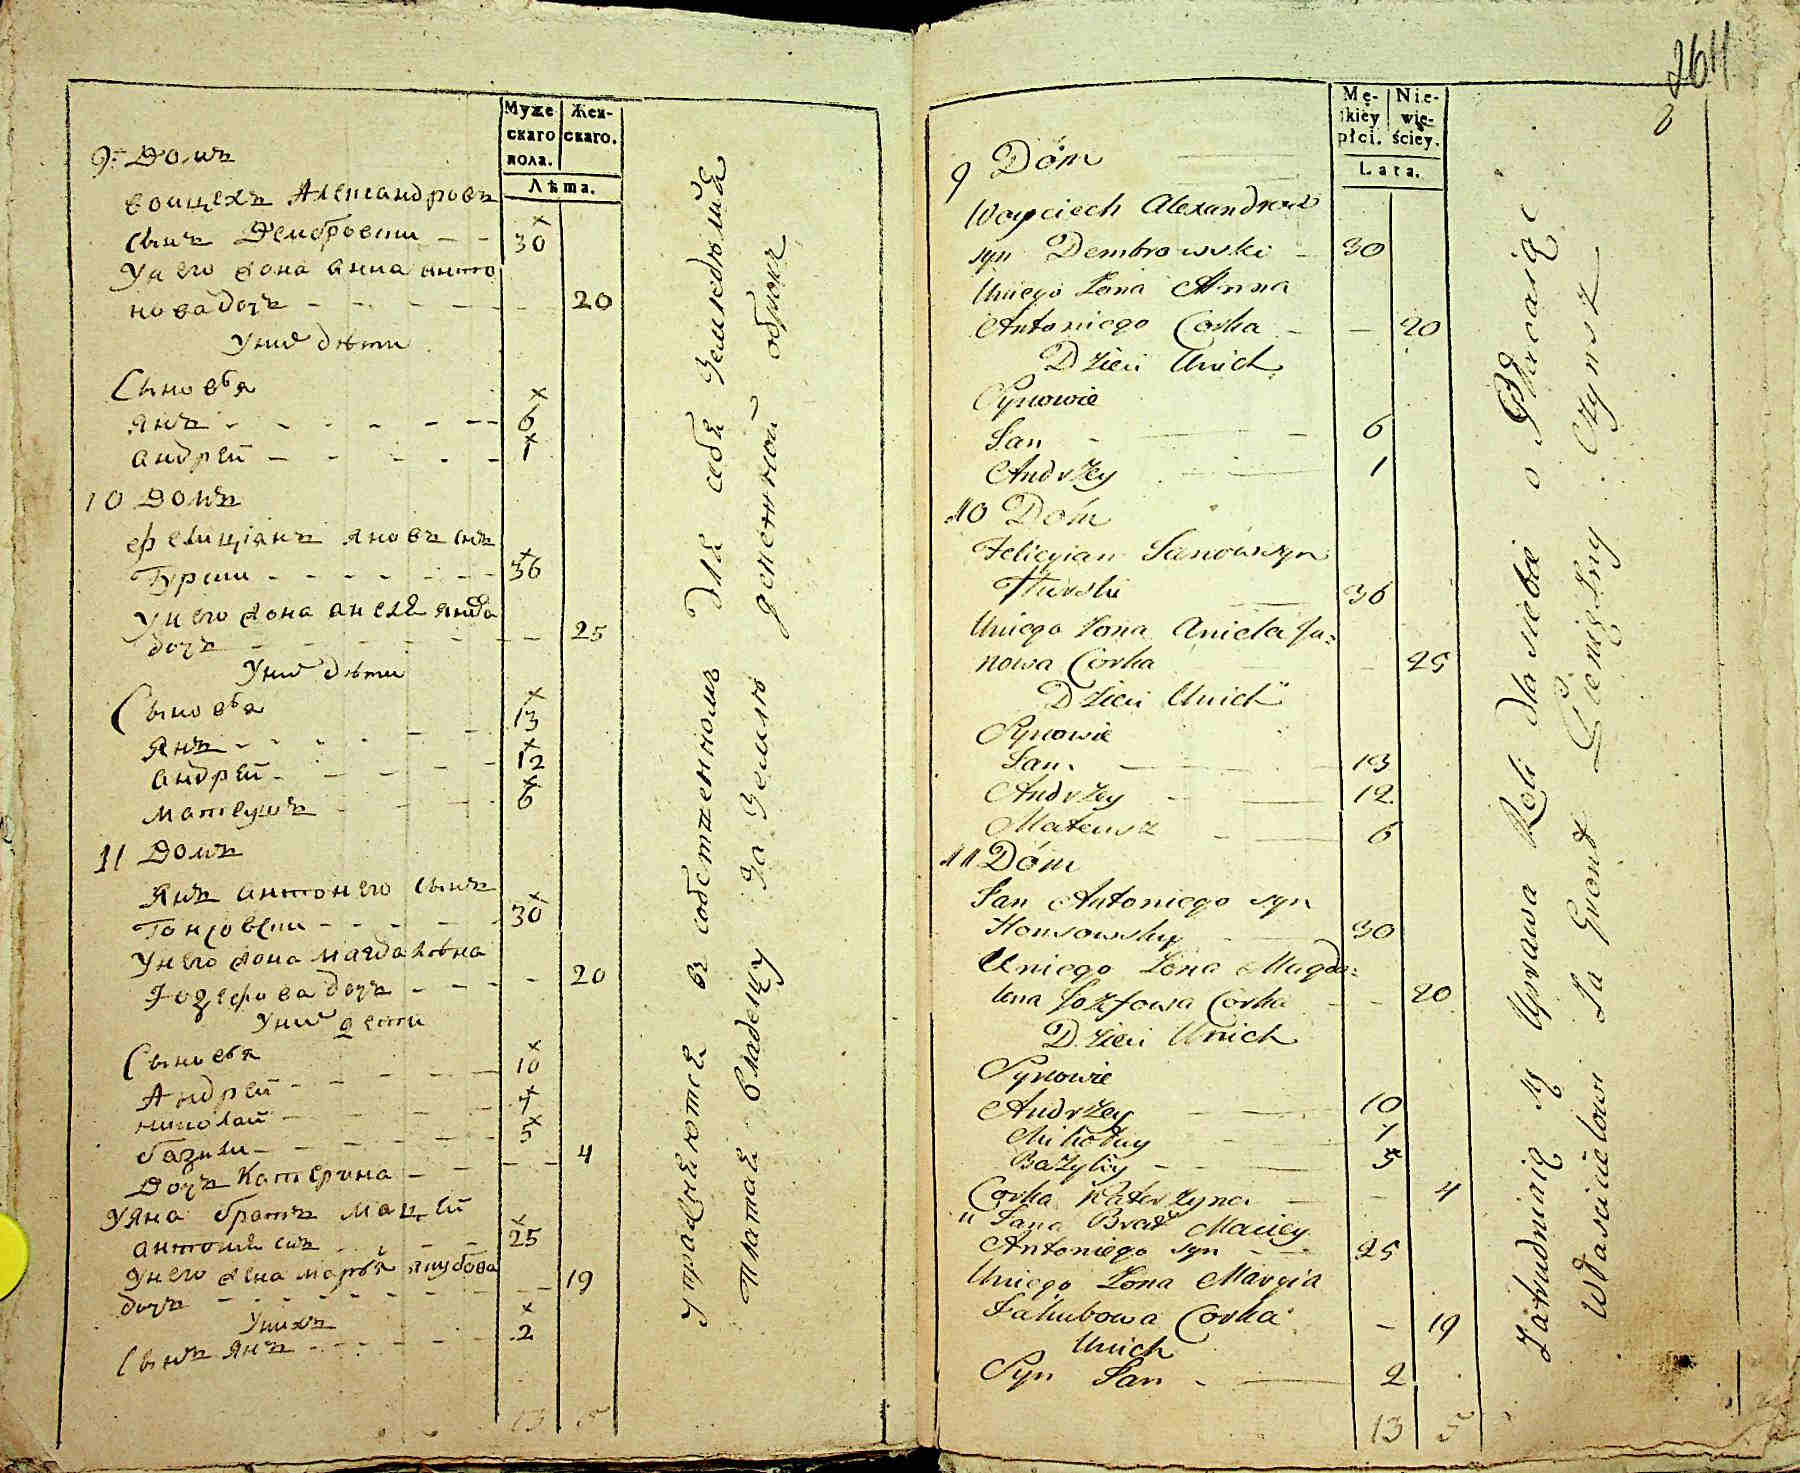 Муже
скаго
пола.
Жен-
скаго.
Лѣта.
9. Домъ
Войцехъ Александровъ
сынъ Дембровски 30
У него жона анна анто
нова дочъ 20
У них дѣти
Сыновья
Янъ 6
андрей 1
10 Домъ
фелиціянъ яновъ снъ
Турски 36
У него жона анеля янова
дочъ 25
У них дѣти
Сыновья
Янъ 13
андрей 12
матеушъ 6
11 Домъ
Янъ антонего сынъ
30
У него жона магдалѣна
Іозефова дочъ 20
У них дети
Сыновья
Андрей 10
николай 7
базыли 5
Дочъ Катерина 4
У яна братъ мацей
антонія снъ 25
У него жена марья якубова
дочъ 19
У нихъ
Сынъ янъ 2
13 5
упражняются в собственномъ для себя земледѣлія
платя владелцу за землю денежной оброкъ
264
8
Mę-
skiéy
płci.
Nie-
wie-
ściey.
Lata.
9 Dóm
Woyciech Alexandrow
syn Dembrowski 30
Uniego Żona Anna
Antoniego Corka 20
Dzieci Unich
Synowie
Jan 6
Andrzey 1
10 Dóm
Felicyian Janów syn
Turski 36
Uniego Żona Aniela Ja=
nowa Corka 25
Dzieci Unich
Synowie
Jan 13
Andrzey 12
Mateusz 6
11 Dóm
Jan Antoniego syn
30
Uniego Żona Magda=
lena Jozefowa Corka 20
Dzieci Unich
Synowie
Andrzey 10
Mikołay 7
Bazyliy 5
Corka Katarzyna 4
U Jana Brat Maciey
Antoniego syn 25
Uniego Żona Maryia
Jakubowa Corka 19
Unich
Syn Jan 2
13 5
Zatrudninię się Uprawa Roli dla siebie o Płacaiąc
Właścicielowi Za Gront Pieniężny Czynsz